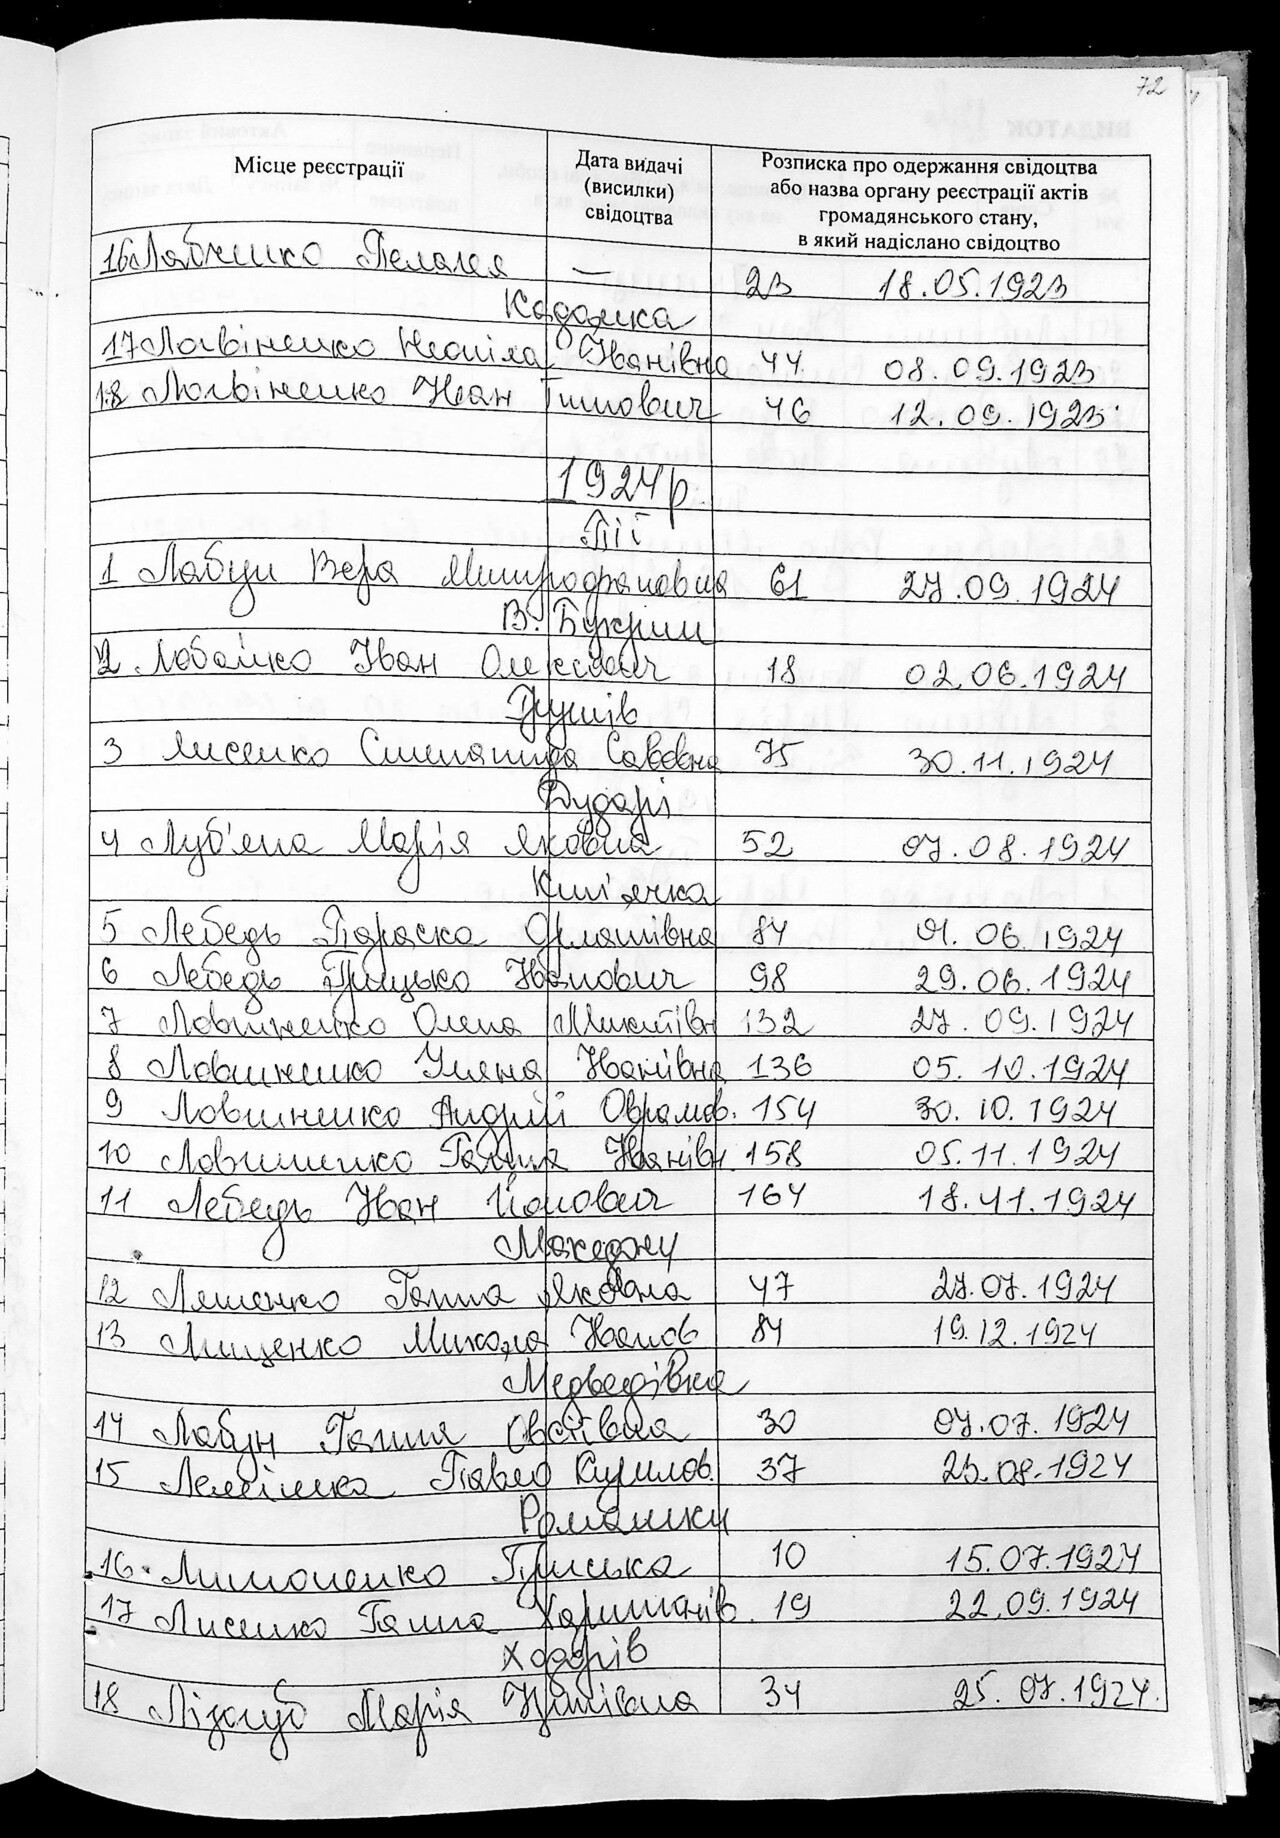 72
Місце реєстрації
Дата видачі (висилки) свідоцтва
Розписка про одержання свідоцтва або назва органу реєстрації актів громадянського стану, в який надіслано свідоцтво
16 Лабченко Пелагея — 23 18.05.1923
Кадомка
17 Логвіненко Неоніла Іванівна 44 08.09.1923
18 Логвіненко Іван Тимович 46 12.09.1923
1924 р
Пії
1 Лабун Вера Митрофановна 61 27.09.1924
В. Букрин
2 Лобайко Іван Олексович 18 02.06.1924
Грушів
3 Лисенко Степанида Савовна 75 30.11.1924
Дударі
4 Луб'яна Марія Яковна 52 07.08.1924
Кип'ячка
5 Лебедь Параска 84 01.06.1924
6 Лебедь Грицько Іванович 98 29.06.1924
7 Ловиненко Олена Микитівн 132 27.09.1924
8 Ловиненко Уляна Іванівна 136 05.10.1924
9 Ловиненко Андрій Оврамов. 154 30.10.1924
10 Ловиненко Ганна Іванівн. 158 05.11.1924
11 Лебедь Іван Йонович 164 18.11.1924
Македони
12 Ляшенко Ганна Яковна 47 27.07.1924
13 Лищенко Микола Іванов 84 19.12.1924
Медведівка
14 Лабун Ганна Овсіївна 30 07.07.1924
15 Павло Курилов. 37 23.08.1924
Ромашки
16 Лимоненко Грицька 10 15.07.1924
17 Лисенко Ганна Харитонів. 19 22.09.1924
Ходорів
18 Лізогуб Марія 34 25.07.1924.